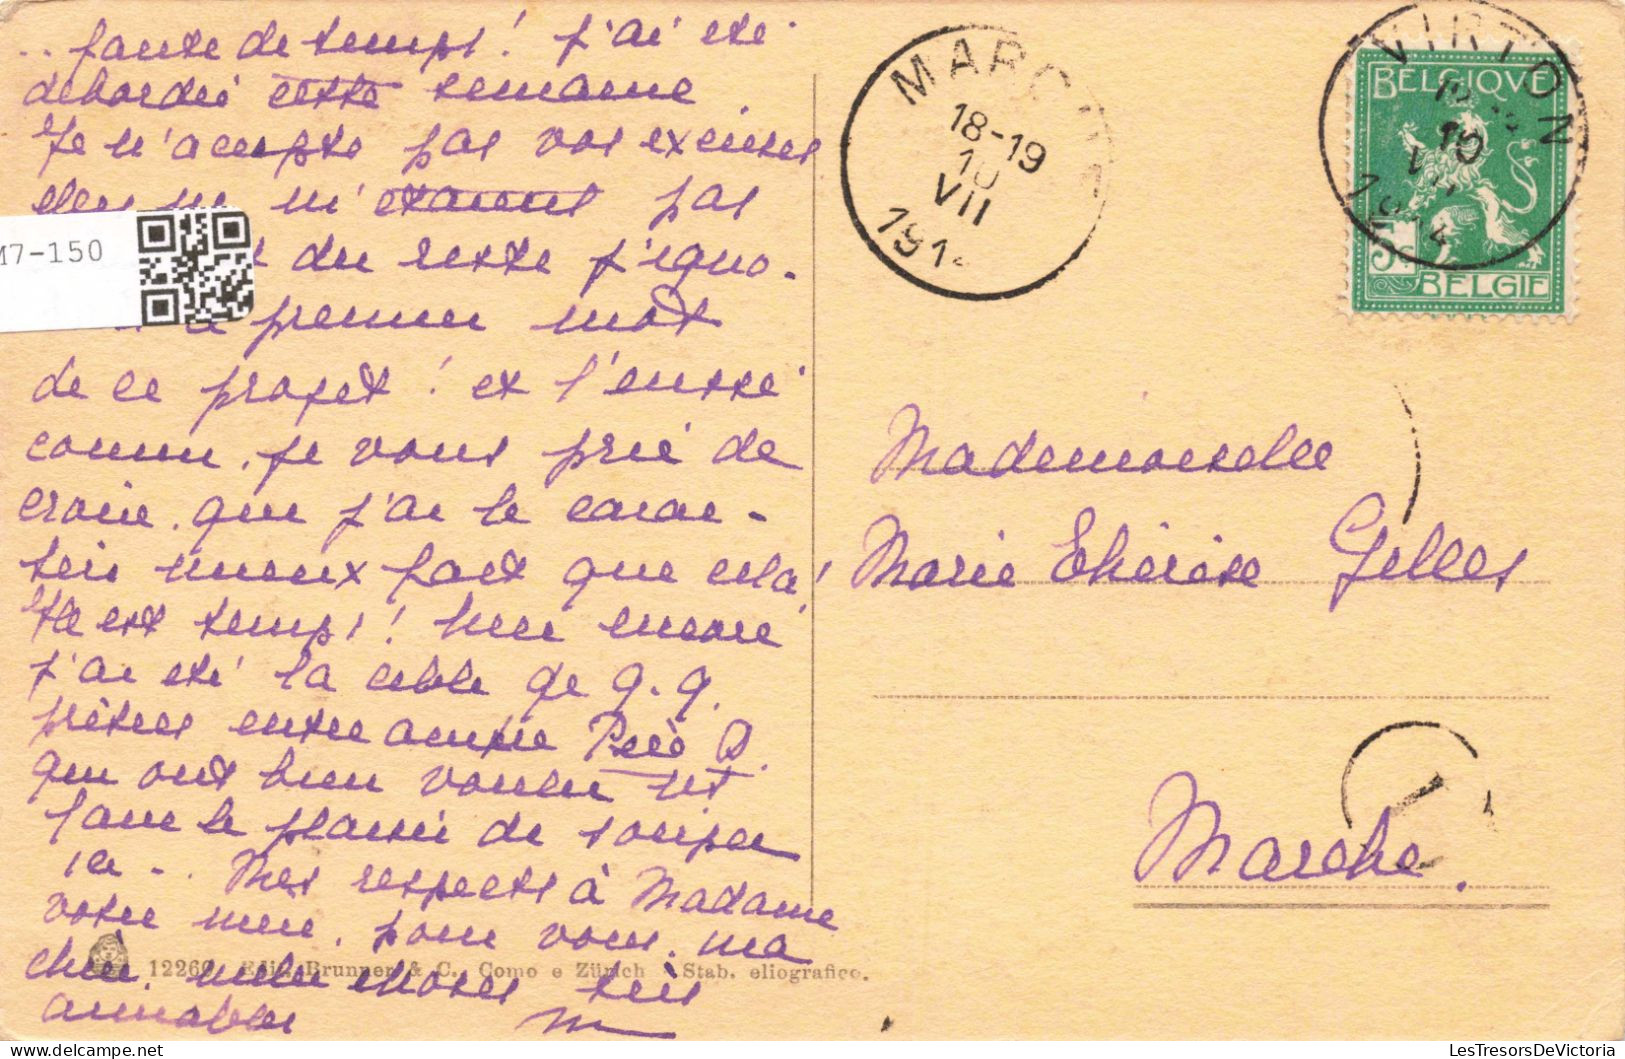 .. faute de temps! j'ai été
débordée cette semaine.
Je n'accepte pas vos excuses
elles ne m' pas
du reste j'igno-
premier mot
de ce projet! et l'eussé
connu, je vous prie de
croire que j'ai le carac-
tère mieux fait que cela!
est temps! hier encore
j'ai été la cible de q.q.
prêtres entre autre Père D.
qui ont bien voulu
faire le plaisir de souper
ici... Mes respects à Madame
votre mère, pour vous, ma
chère, mille choses très
aimables M
M7-150
12260 Edit. Brunner & C. Como e Zürich Stab. eliografico.
MARCHE
18-19
10
VII
1914
VIRTON
10
VII
1914
BELGIQUE
5c
BELGIE
Mademoiselle
Marie Thérèse Gilles
Marche.
delcampe.net
LesTresorsDeVictoria